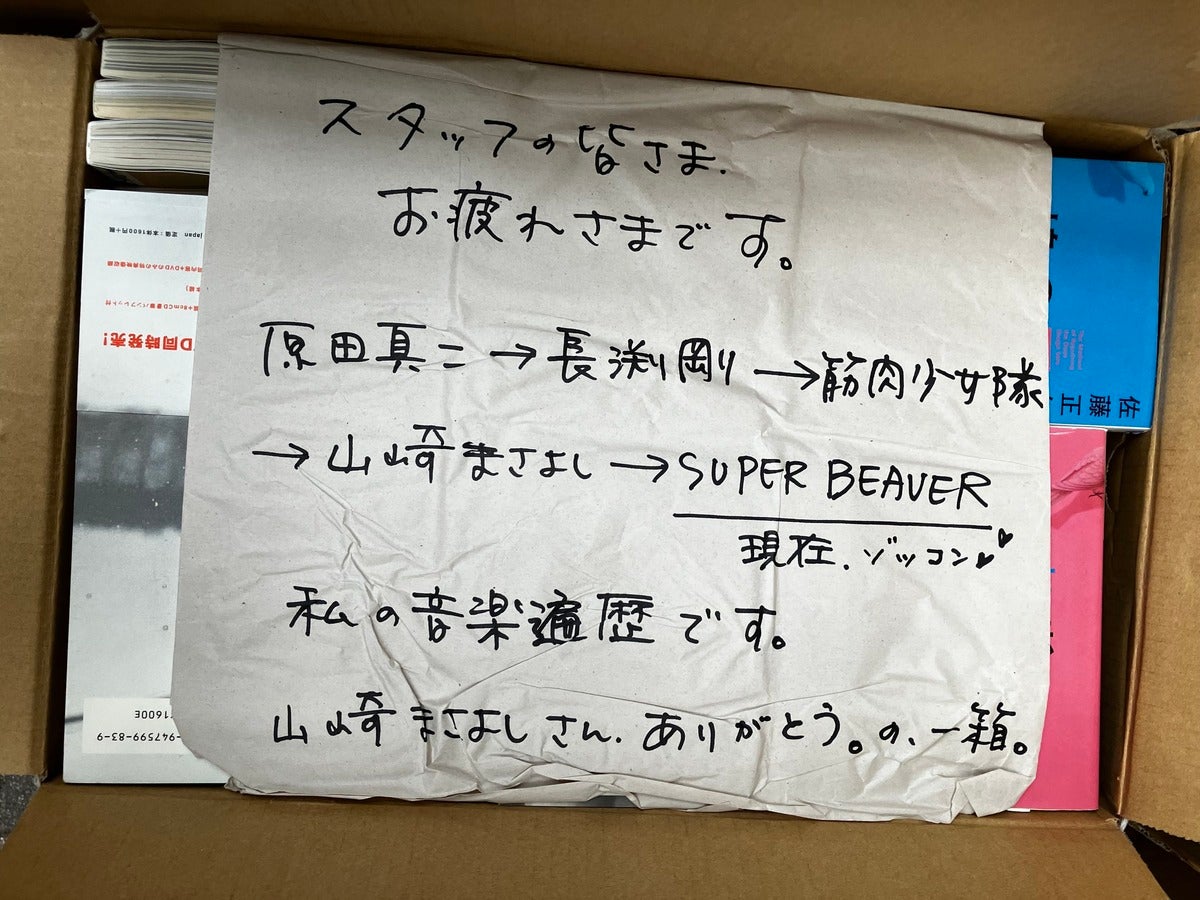 スタッフの皆さま.
お疲れさまです。
原田真二→長渕剛→筋肉少女隊
→山崎まさよし→SUPER BEAVER
現在.ゾッコン♥♥
私の音楽遍歴です。
山崎まさよしさん.ありがとう。の、一箱。
佐藤正
D同時発売!
定価:本体1600円+税
1600E
-947599-83-9